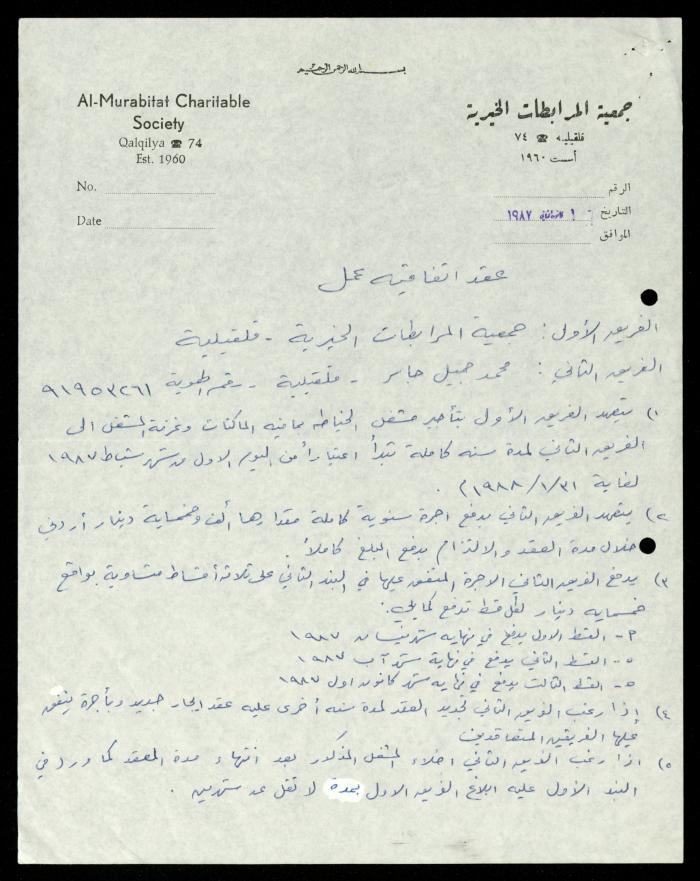 بسم الله الرحمن الرحيم
Al-Murabitat Charitable
Society
Qalqilya ☎ 74
Est. 1960
No.
Date
جمعية المرابطات الخيرية
قلقيليه ☎ ٧٤
أسست ١٩٦٠
الرقم
التاريخ ١ كانون ثاني ١٩٨٧
الموافق
عقد اتفاقيه عمل
الفريق الأول : جمعية المرابطات الخيرية - قلقيلية
الفريق الثاني : محمد جميل جابر - قلقيلية - رقم الهوية ٩١٩٥٣٢٦١
١) يتعهد الفريق الأول بتأجير مشغل الخياطه بما فيه الماكنات وغرفة المشغل الى
الفريق الثاني لمدة سنه كاملة تبدأ اعتباراً من اليوم الاول من شهر شباط ١٩٨٧
لغاية ٣١/١/١٩٨٨) .
٢) يتعهد الفريق الثاني بدفع اجرة سنوية كاملة مقدارها ألف وخمسماية دينار أردني
خلال مدة العقد والالتزام بدفع المبلغ كاملاً .
٣) يدفع الفريق الثاني الاجرة المتفق عليها في البند الثاني على ثلاثة أقساط متساوية بواقع
خمسمايه دينار لكل قسط تدفع كما يلي :
- القسط الاول يدفع في نهايه شهر نيسان ١٩٨٧
- القسط الثاني يدفع في نهاية شهر آب ١٩٨٧
- القسط الثالث يدفع في نهايه شهر كانون اول ١٩٨٧
٤) إذا رغب الفريق الثاني تجديد العقد لمدة سنه أخرى عليه عقد ايجار جديد وبأجرة يتفق
عليها الفريقين المتعاقدين
٥) اذا رغب الفريق الثاني اخلاء المشغل المذكور بعد انتهاء مدة العقد كما ورد في
البند الأول عليه ابلاغ الفريق الاول بمدة لا تقل عن شهرين .